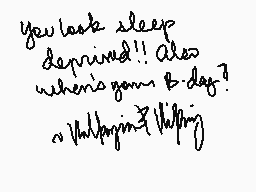 You look sleep
deprived!! Also
when's your B-day?